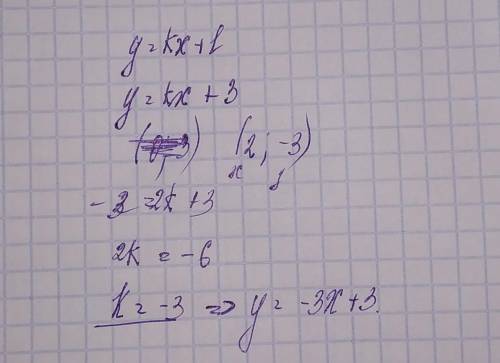 y = kx + 1
y = kx + 3
(0; 3) (2; -3)
x y
-3 = 2k + 3
2k = -6
k = -3 => y = -3x + 3.